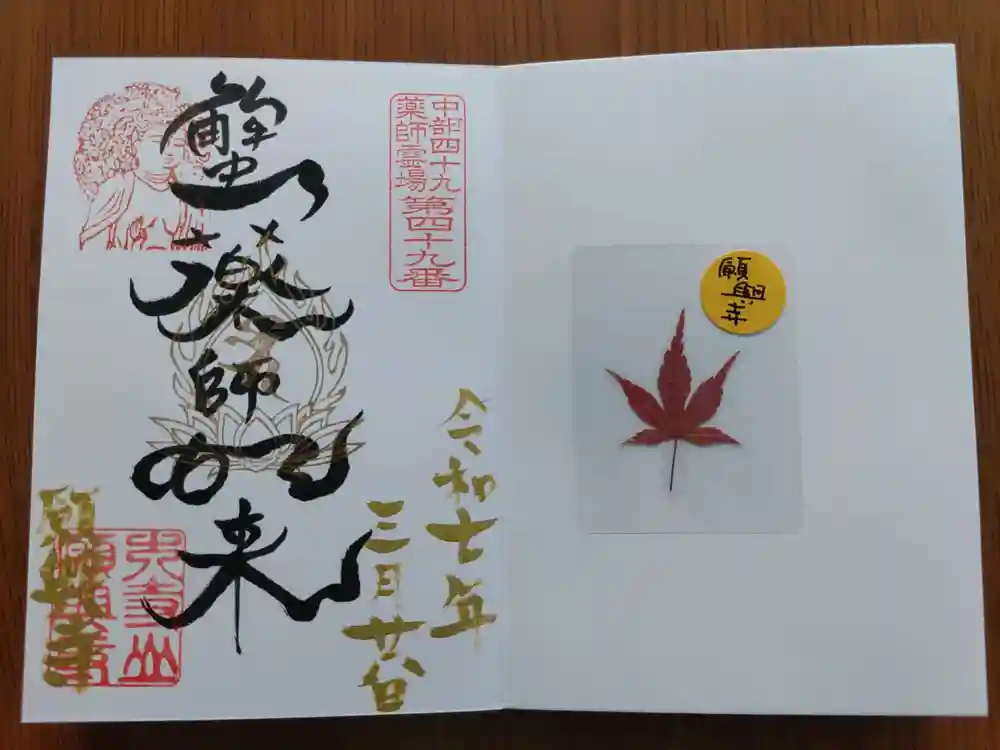 中部四十九
薬師霊場
第四十九番
蟹薬師如来
令和七年
三月廿八日
願興寺
大寺山
願興寺
願興寺